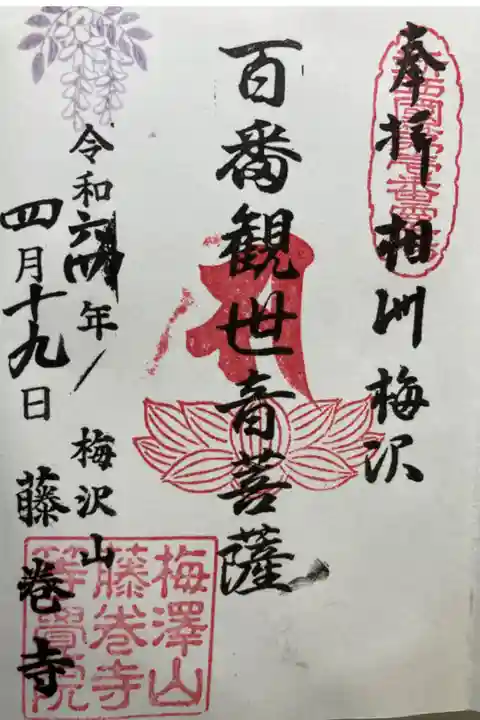 奉拝 相州梅沢
百番観世音菩薩
令和六年
四月十九日
梅沢山
藤巻寺
梅澤山
藤巻寺
等覺院